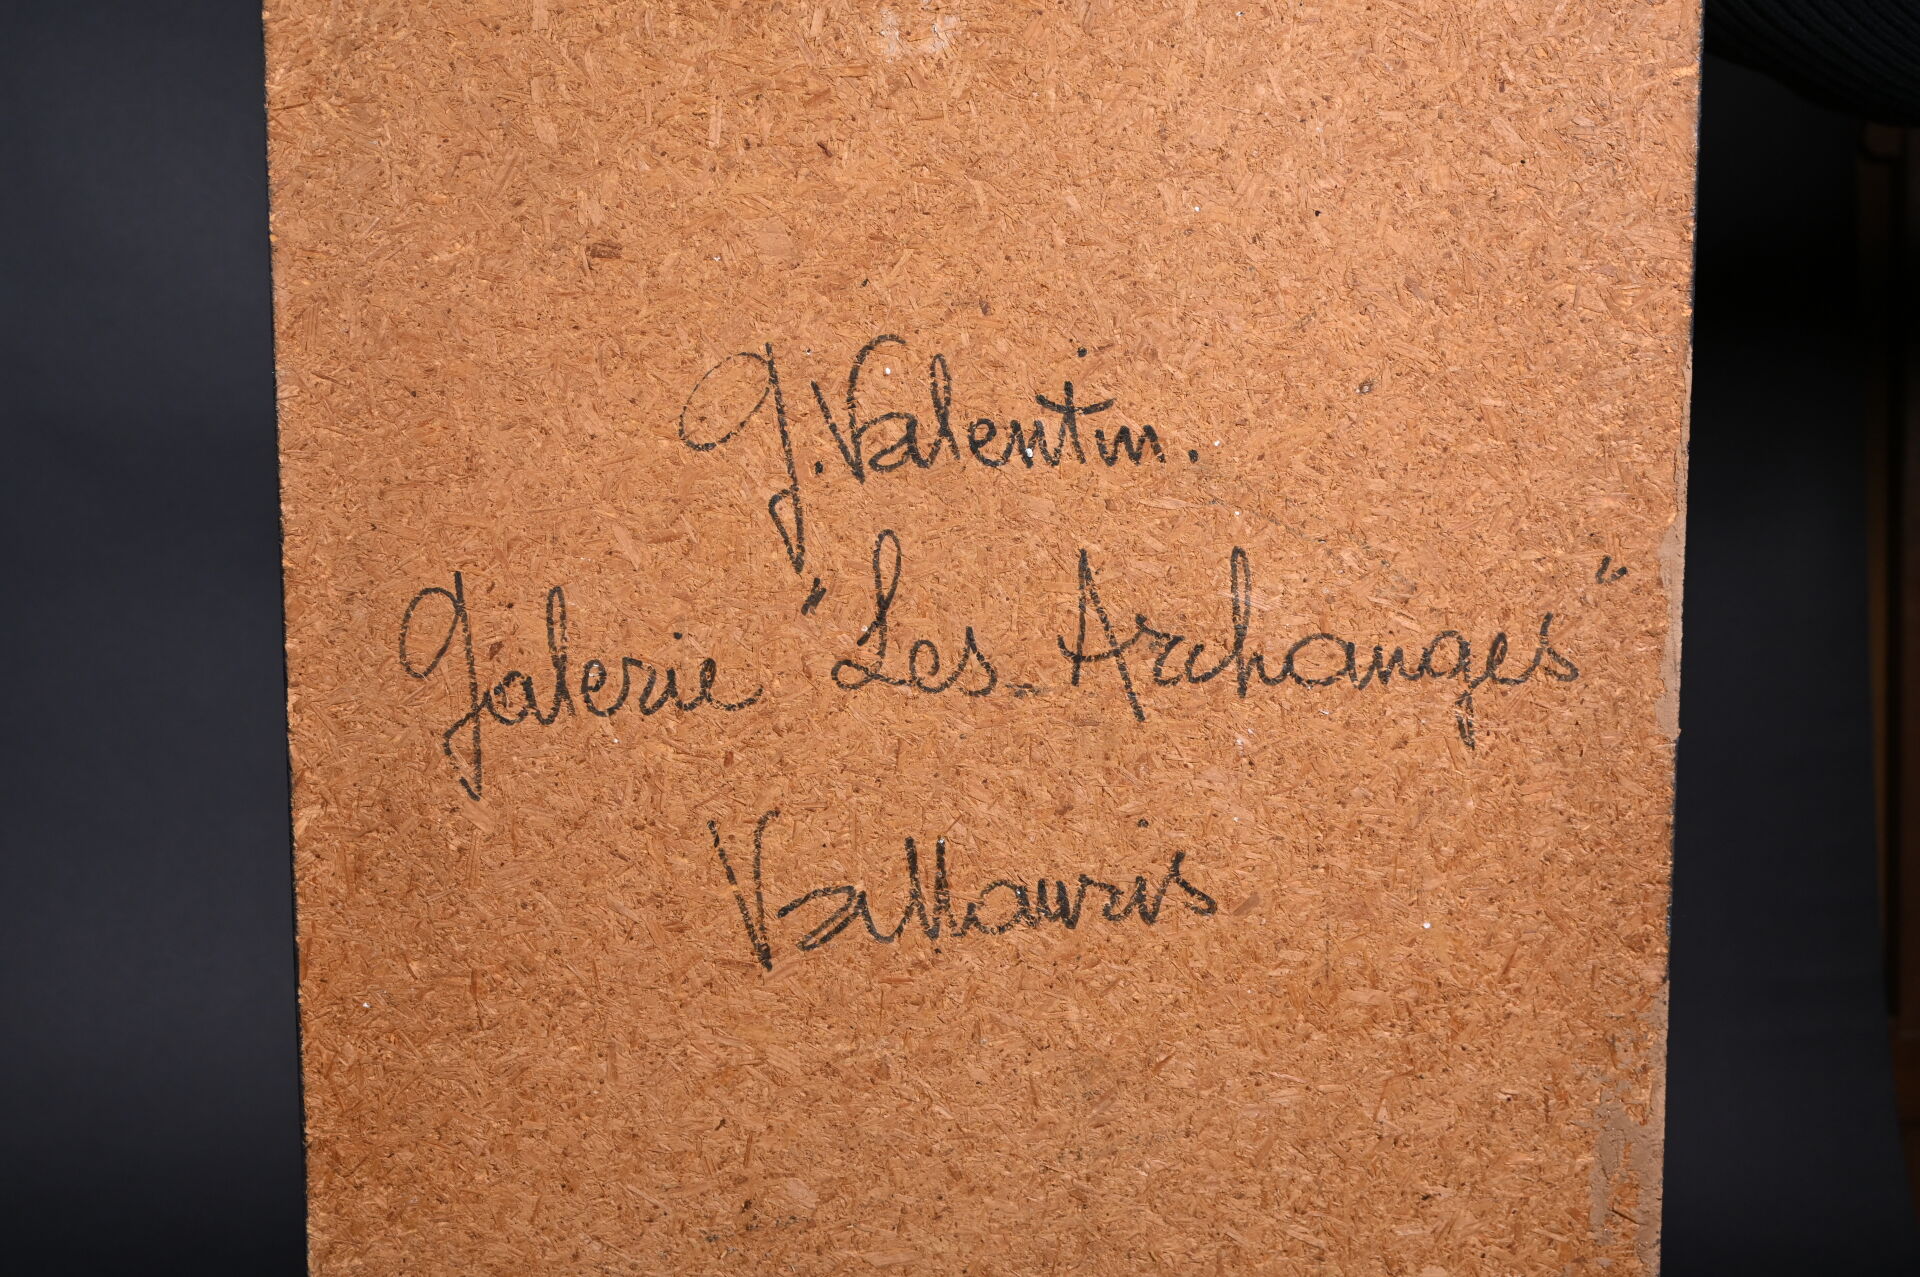 G. Valentin.
Galerie "Les Archanges"
Vallauris